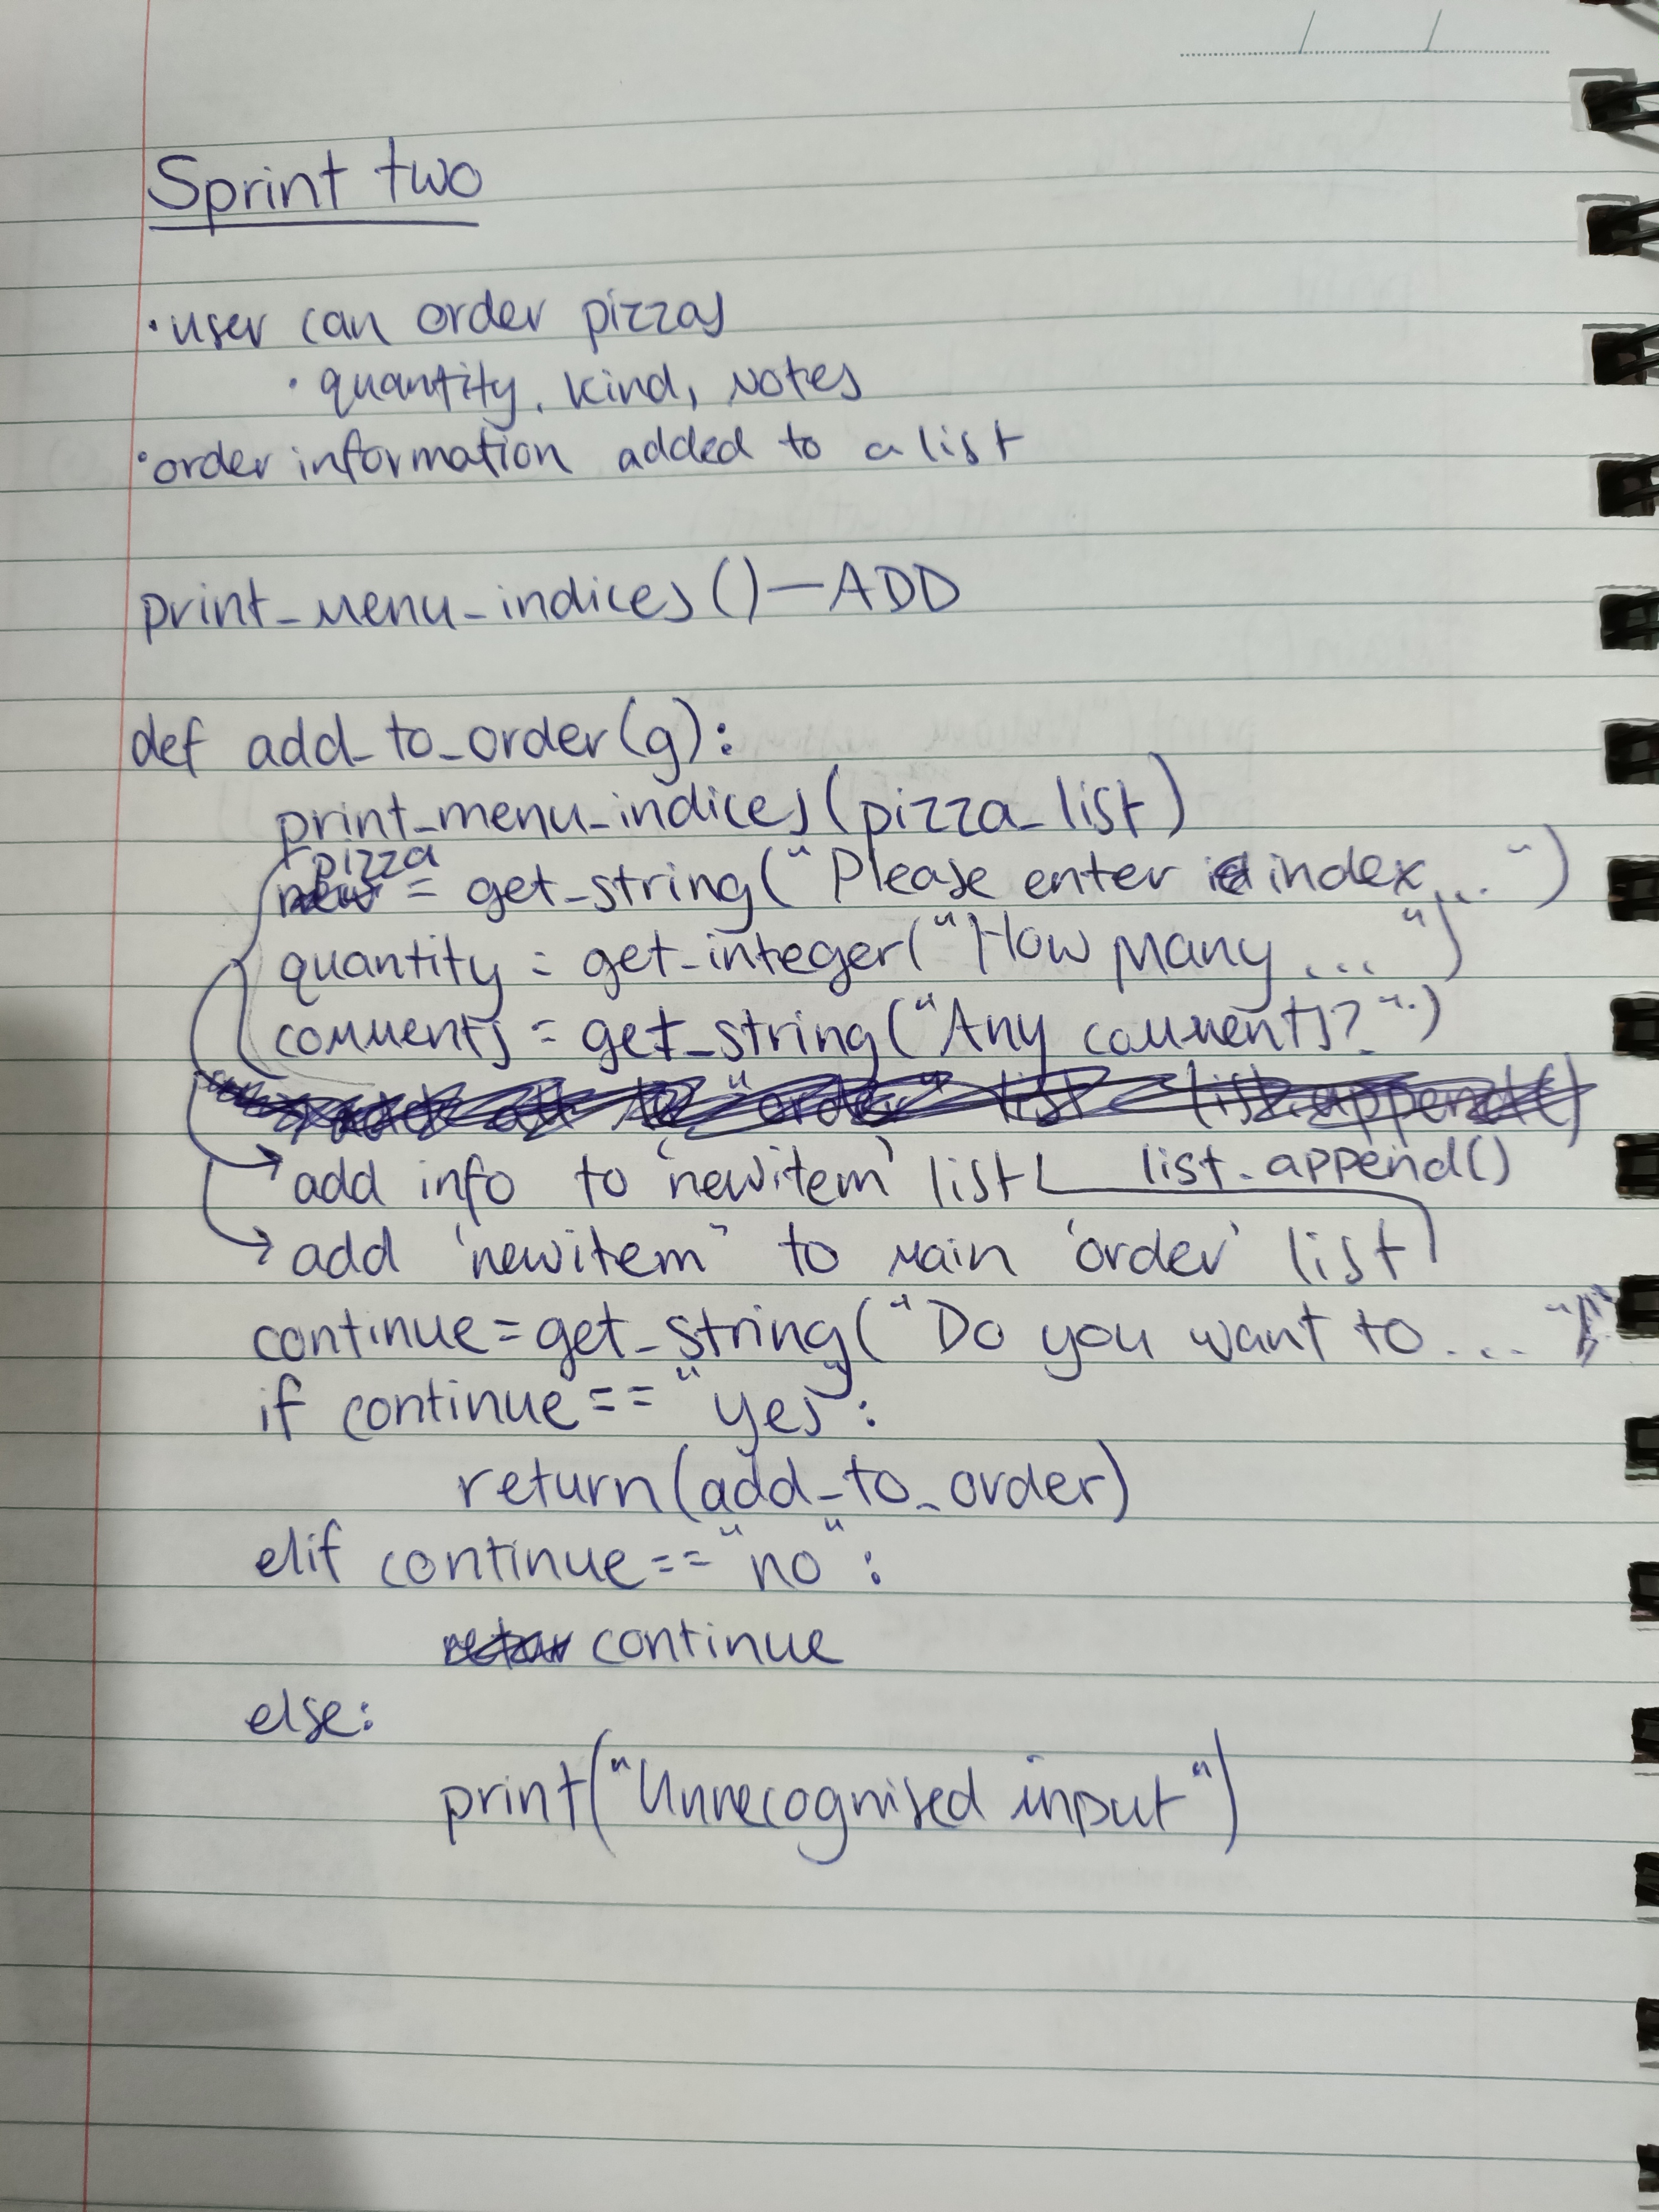 Sprint two
• user can order pizzas
• quantity, kind, notes
• order information added to a list
print_menu_indices() — ADD
def add_to_order(g):
print_menu_indices(pizza_list)
pizza
new = get_string("Please enter index... ")
quantity = get_integer("How many ... ")
comments = get_string("Any comments? ")
"order" list list.append()
add info to 'newitem' list list.append()
add 'newitem' to main 'order' list
continue = get_string("Do you want to ... ")
if continue == "yes":
return(add_to_order)
elif continue == "no":
continue
else:
print("Unrecognised input")